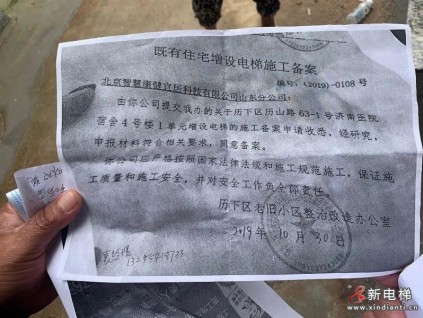 既有住宅增设电梯施工备案
编号:(2019)-0108号
北京智慧康健宜居科技有限公司山东分公司:
由你公司提交我办的关于历下区历山路63-1号济南医院
宿舍4号楼1单元增设电梯的施工备案申请收悉,经研究,
申报材料符合相关要求,同意备案。
你公司应严格按照国家法律法规和施工规范施工,保证施
工质量和施工安全,并对安全工作负全部责任。
历下区老旧小区整治改造办公室
2019年10月30日
新电梯
www.xindianti.cn